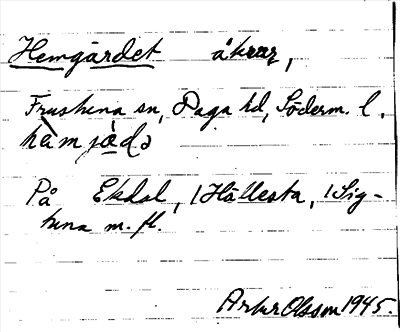 Hemgärdet åkrar,
Frustuna sn, Daga hd, Söderm. l.
hàmjàdə
På Ekdal, /Hällesta, /Sig-
tuna m. fl.
Artur Olsson 1945.